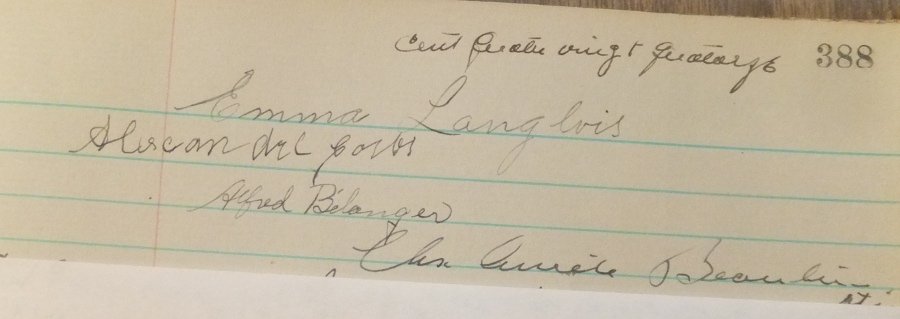 cent quatre vingt quatorze 388
Emma Langlois
Alexandre
Alfred Bélanger
Chs Beaulieu